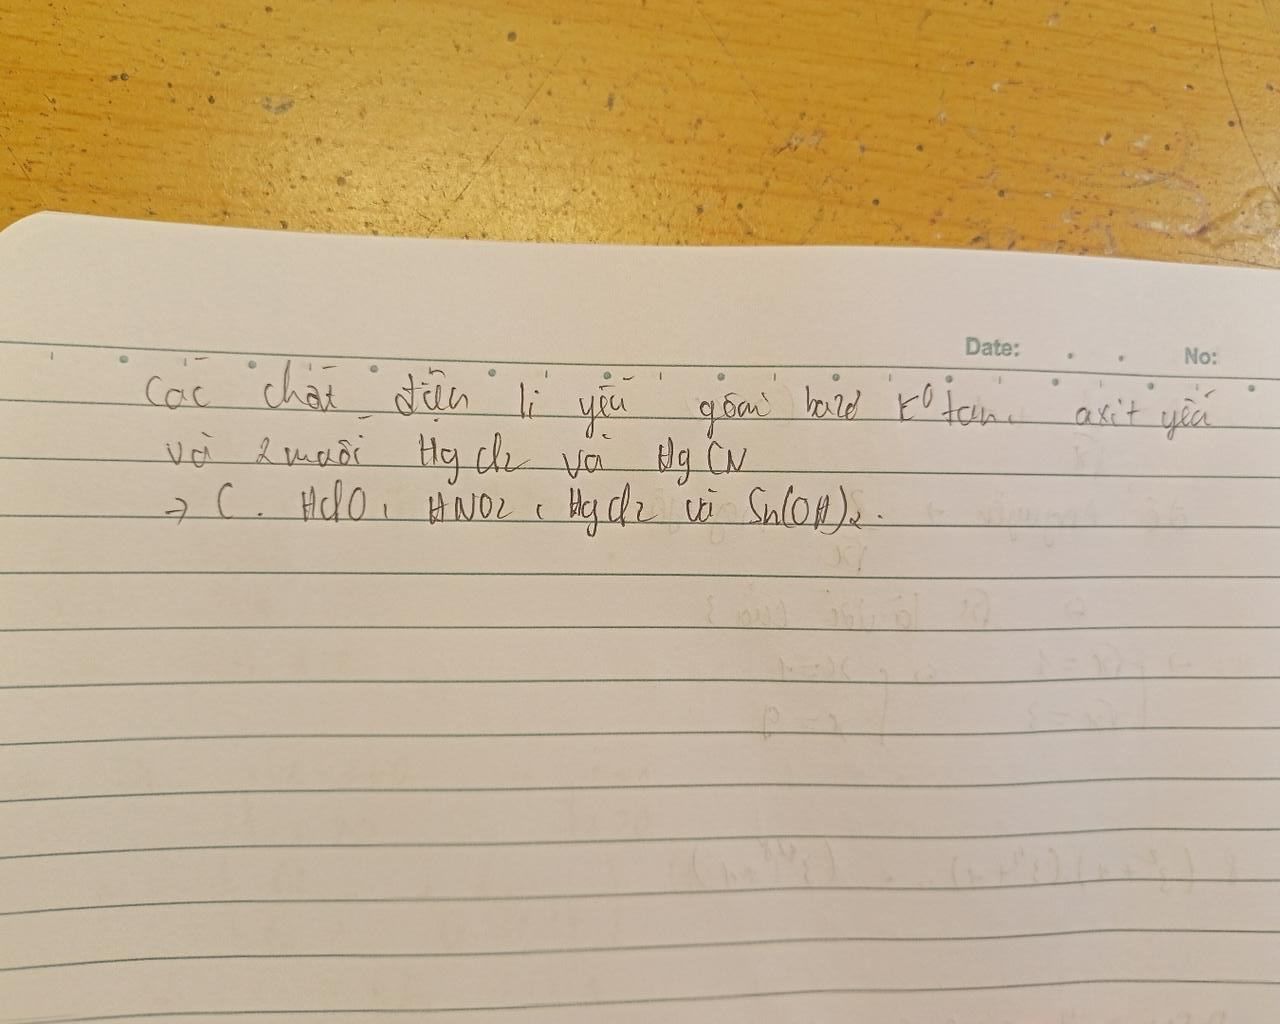 Date: No:
Các chất điện li yếu gồm bazơ k⁰ tan, axit yếu
và 2 muối HgCl2 và HgCN
→ C. HClO, HNO2, HgCl2 và Sn(OH)2.